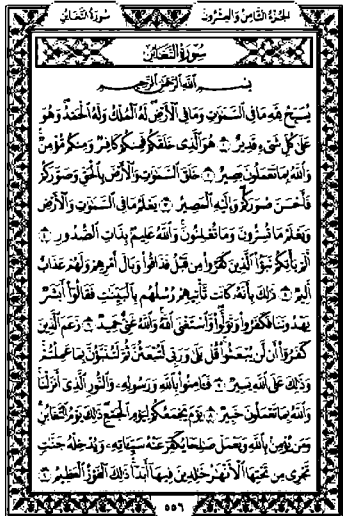 الجُزْءُ الثَّامِنُ وَالعِشْرُونَ سُورَةُ التَّغَابُن
سُورَةُ التَّغَابُنِ
بِسْمِ ٱللَّهِ ٱلرَّحْمَٰنِ ٱلرَّحِيمِ
يُسَبِّحُ لِلَّهِ مَا فِي ٱلسَّمَٰوَٰتِ وَمَا فِي ٱلْأَرْضِ لَهُ ٱلْمُلْكُ وَلَهُ ٱلْحَمْدُ وَهُوَ
عَلَىٰ كُلِّ شَيْءٍ قَدِيرٌ ١ هُوَ ٱلَّذِي خَلَقَكُمْ فَمِنكُمْ كَافِرٌ وَمِنكُم مُّؤْمِنٌ
وَٱللَّهُ بِمَا تَعْمَلُونَ بَصِيرٌ ٢ خَلَقَ ٱلسَّمَٰوَٰتِ وَٱلْأَرْضَ بِٱلْحَقِّ وَصَوَّرَكُمْ
فَأَحْسَنَ صُوَرَكُمْ وَإِلَيْهِ ٱلْمَصِيرُ ٣ يَعْلَمُ مَا فِي ٱلسَّمَٰوَٰتِ وَٱلْأَرْضِ
وَيَعْلَمُ مَا تُسِرُّونَ وَمَا تُعْلِنُونَ وَٱللَّهُ عَلِيمٌ بِذَاتِ ٱلصُّدُورِ ٤
أَلَمْ يَأْتِكُمْ نَبَؤُا۟ ٱلَّذِينَ كَفَرُوا۟ مِن قَبْلُ فَذَاقُوا۟ وَبَالَ أَمْرِهِمْ وَلَهُمْ عَذَابٌ
أَلِيمٌ ٥ ذَٰلِكَ بِأَنَّهُ كَانَت تَّأْتِيهِمْ رُسُلُهُم بِٱلْبَيِّنَٰتِ فَقَالُوٓا۟ أَبَشَرٌ
يَهْدُونَنَا فَكَفَرُوا۟ وَتَوَلَّوا۟ وَّٱسْتَغْنَى ٱللَّهُ وَٱللَّهُ غَنِيٌّ حَمِيدٌ ٦ زَعَمَ ٱلَّذِينَ
كَفَرُوٓا۟ أَن لَّن يُبْعَثُوا۟ قُلْ بَلَىٰ وَرَبِّي لَتُبْعَثُنَّ ثُمَّ لَتُنَبَّؤُنَّ بِمَا عَمِلْتُمْ
وَذَٰلِكَ عَلَى ٱللَّهِ يَسِيرٌ ٧ فَـَٔامِنُوا۟ بِٱللَّهِ وَرَسُولِهِ وَٱلنُّورِ ٱلَّذِيٓ أَنزَلْنَا
وَٱللَّهُ بِمَا تَعْمَلُونَ خَبِيرٌ ٨ يَوْمَ يَجْمَعُكُمْ لِيَوْمِ ٱلْجَمْعِ ذَٰلِكَ يَوْمُ ٱلتَّغَابُنِ
وَمَن يُؤْمِنۢ بِٱللَّهِ وَيَعْمَلْ صَٰلِحًا يُكَفِّرْ عَنْهُ سَيِّـَٔاتِهِ وَيُدْخِلْهُ جَنَّٰتٍ
تَجْرِي مِن تَحْتِهَا ٱلْأَنْهَٰرُ خَٰلِدِينَ فِيهَآ أَبَدًا ذَٰلِكَ ٱلْفَوْزُ ٱلْعَظِيمُ ٩
٥٥٦